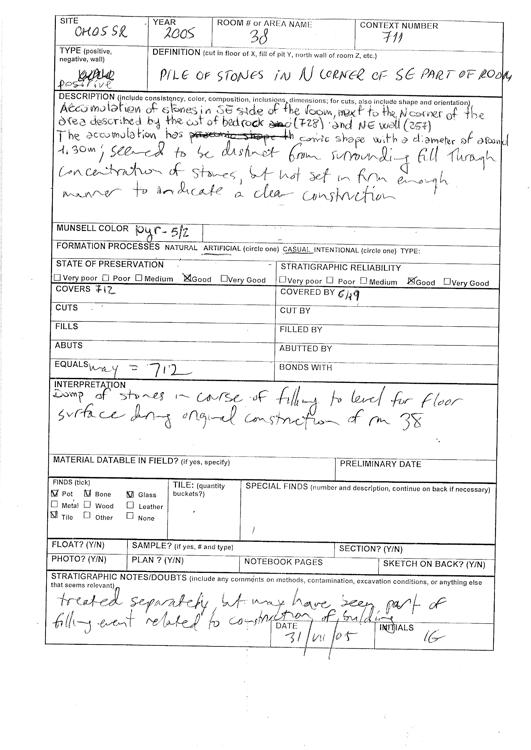 SITE YEAR ROOM # or AREA NAME CONTEXT NUMBER
OMOS SR 2005 38 711
TYPE (positive, negative, wall) DEFINITION (cut in floor of X, fill of pit Y, north wall of room Z, etc.)
positive PILE OF STONES IN N CORNER OF SE PART OF ROOM
DESCRIPTION (include consistency, color, composition, inclusions, dimensions; for cuts, also include shape and orientation)
Accumulation of stones in SE side of the room, next to the N corner of the
area described by the cut of bedrock (728) and NE wall (257)
The accumulation has conic shape with a diameter of around
1.30m; seemed to be distinct from surrounding fill through
concentration of stones, but not set in firm enough
manner to indicate a clear construction
MUNSELL COLOR pyr-5/2
FORMATION PROCESSES NATURAL ARTIFICIAL (circle one) CASUAL INTENTIONAL (circle one) TYPE:
STATE OF PRESERVATION STRATIGRAPHIC RELIABILITY
☐Very poor ☐Poor ☐Medium ☒Good ☐Very Good ☐Very poor ☐Poor ☐Medium ☒Good ☐Very Good
COVERS 712 COVERED BY 649
CUTS CUT BY
FILLS FILLED BY
ABUTS ABUTTED BY
EQUALS may = 712 BONDS WITH
INTERPRETATION
Dump of stones in course of filling to level for floor
surface during original construction of rm 38
MATERIAL DATABLE IN FIELD? (if yes, specify) PRELIMINARY DATE
FINDS (tick) TILE: (quantity buckets?) SPECIAL FINDS (number and description, continue on back if necessary)
☒ Pot ☒ Bone ☒ Glass
☐ Metal ☐ Wood ☐ Leather
☒ Tile ☐ Other ☐ None
FLOAT? (Y/N) SAMPLE? (if yes, # and type) SECTION? (Y/N)
PHOTO? (Y/N) PLAN ? (Y/N) NOTEBOOK PAGES SKETCH ON BACK? (Y/N)
STRATIGRAPHIC NOTES/DOUBTS (include any comments on methods, contamination, excavation conditions, or anything else
that seems relevant)
treated separately but may have been part of
filling event related to construction of building
DATE 31/VII/05 INITIALS IG